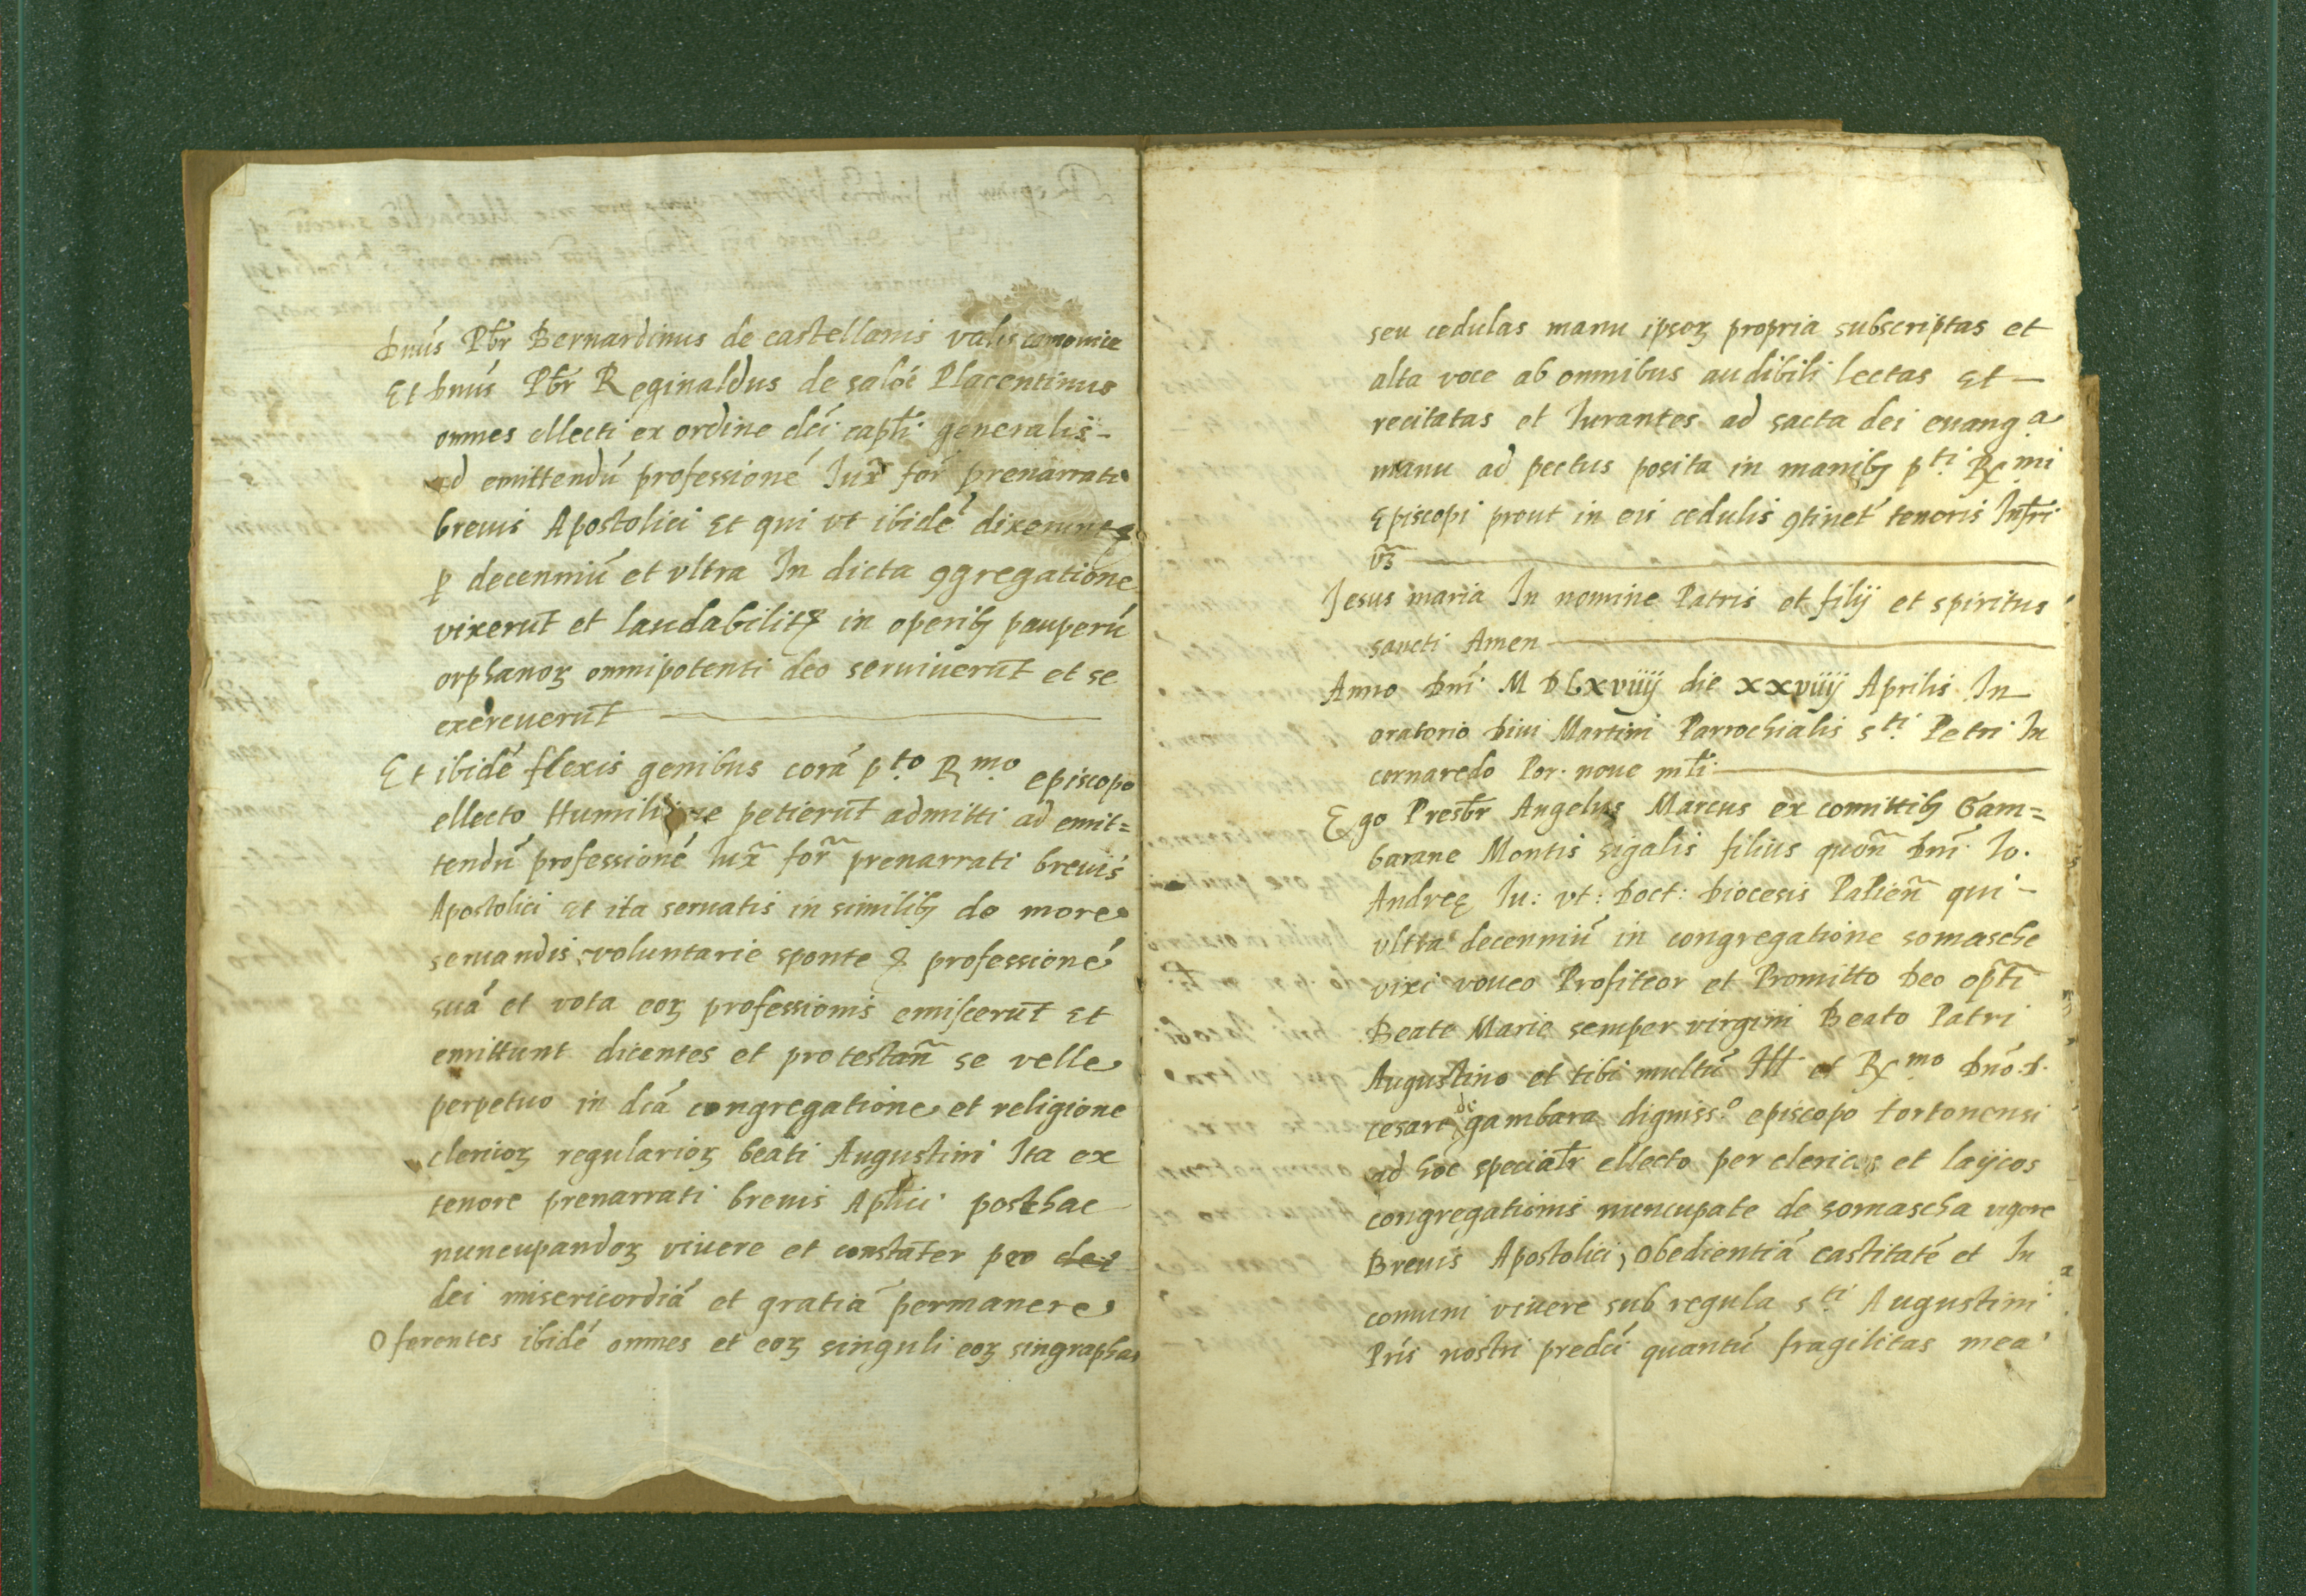 Dnūs Pbr̄ Bernardinus de castellanis valis camonice
Et Dnūs Pbr̄ Reginaldus de salóe Placentinus
omnes ellecti ex ordine dc̄i capl̄i generalis-
ad emittendū professionē Iux̄ for̄ prenarrati
breuis Apostolici Et qui vt ibidē dixerunt
ꝑ decenniū et vltra In dicta ꝯgregatione
vixerūt et laudabilitꝭ in operibꝫ pauperū
orphanoꝝ omnipotenti deo seruiuerūt et se
exercuerūt
Et ibidē flexis genibus corā p.to R.mo episcopo
ellecto petierūt admitti ad emit=
tendū professionē Iux̄ for̄ prenarrati breuis
Apostolici Et ita seruatis in similibꝫ de more
seruandis voluntarie sponte professionē
suā et vota eoꝝ professionis emiscerūt Et
emittunt dicentes et protestan̄ se velle
perpetuo in dc̄ā congregatione et religione
clericoꝝ regularioꝝ beati Augustini Ita ex
tenore prenarrati breuis Apl̄ici posthac
nuncupandoꝝ viuere et constāter pro dei
dei misericordiā et gratiā permanere
Oferentes ibidē omnes et eoꝝ singuli eoꝝ singraphas
seu cedulas manu ipsoꝝ propria subscriptas et
alta voce ab omnibus audibili lectas Et-
recitatas et Iurantes ad sacta dei euang.a
manu ad pectus posita in manibꝫ p.ti R.mi
Episcopi prout in eis cedulis ꝯtinet̄ tenoris Infr̄i
vꝫ
Jesus maria In nomine Patris et filij et spiritus
sancti Amen
Anno Dnī M D Lxviiij die xxviiij Aprilis In
oratorio Diui Martini Parrochialis s.ti Petri In
cornaredo Por. noue ml̄i
Ego Presbr̄ Angelus Marcus ex comittibꝫ Gam=
barane Montis sigalis filius quōn Dnī Io.
Andreę Iu: vt: Doct: Diocesis Papien̄ qui-
vltra decenniū in congregatione somasche
vixi voueo Profiteor et Promitto Deo op̄ti
Beate Marie semper virgini Beato Patri
Augustino et tibi multū Ill et R.mo Dnō.D.
cesare de gambara digniss.o episcopo tortonensi
ad hoc speciatr̄ ellecto per clericos et layicos
congregationis nuncupate de somascha vigore
Breuis Apostolici, Obedientiā castitatē et In
comuni viuere sub regula s.ti Augustini
Prīs nostri predc̄i quantū fragilitas mea